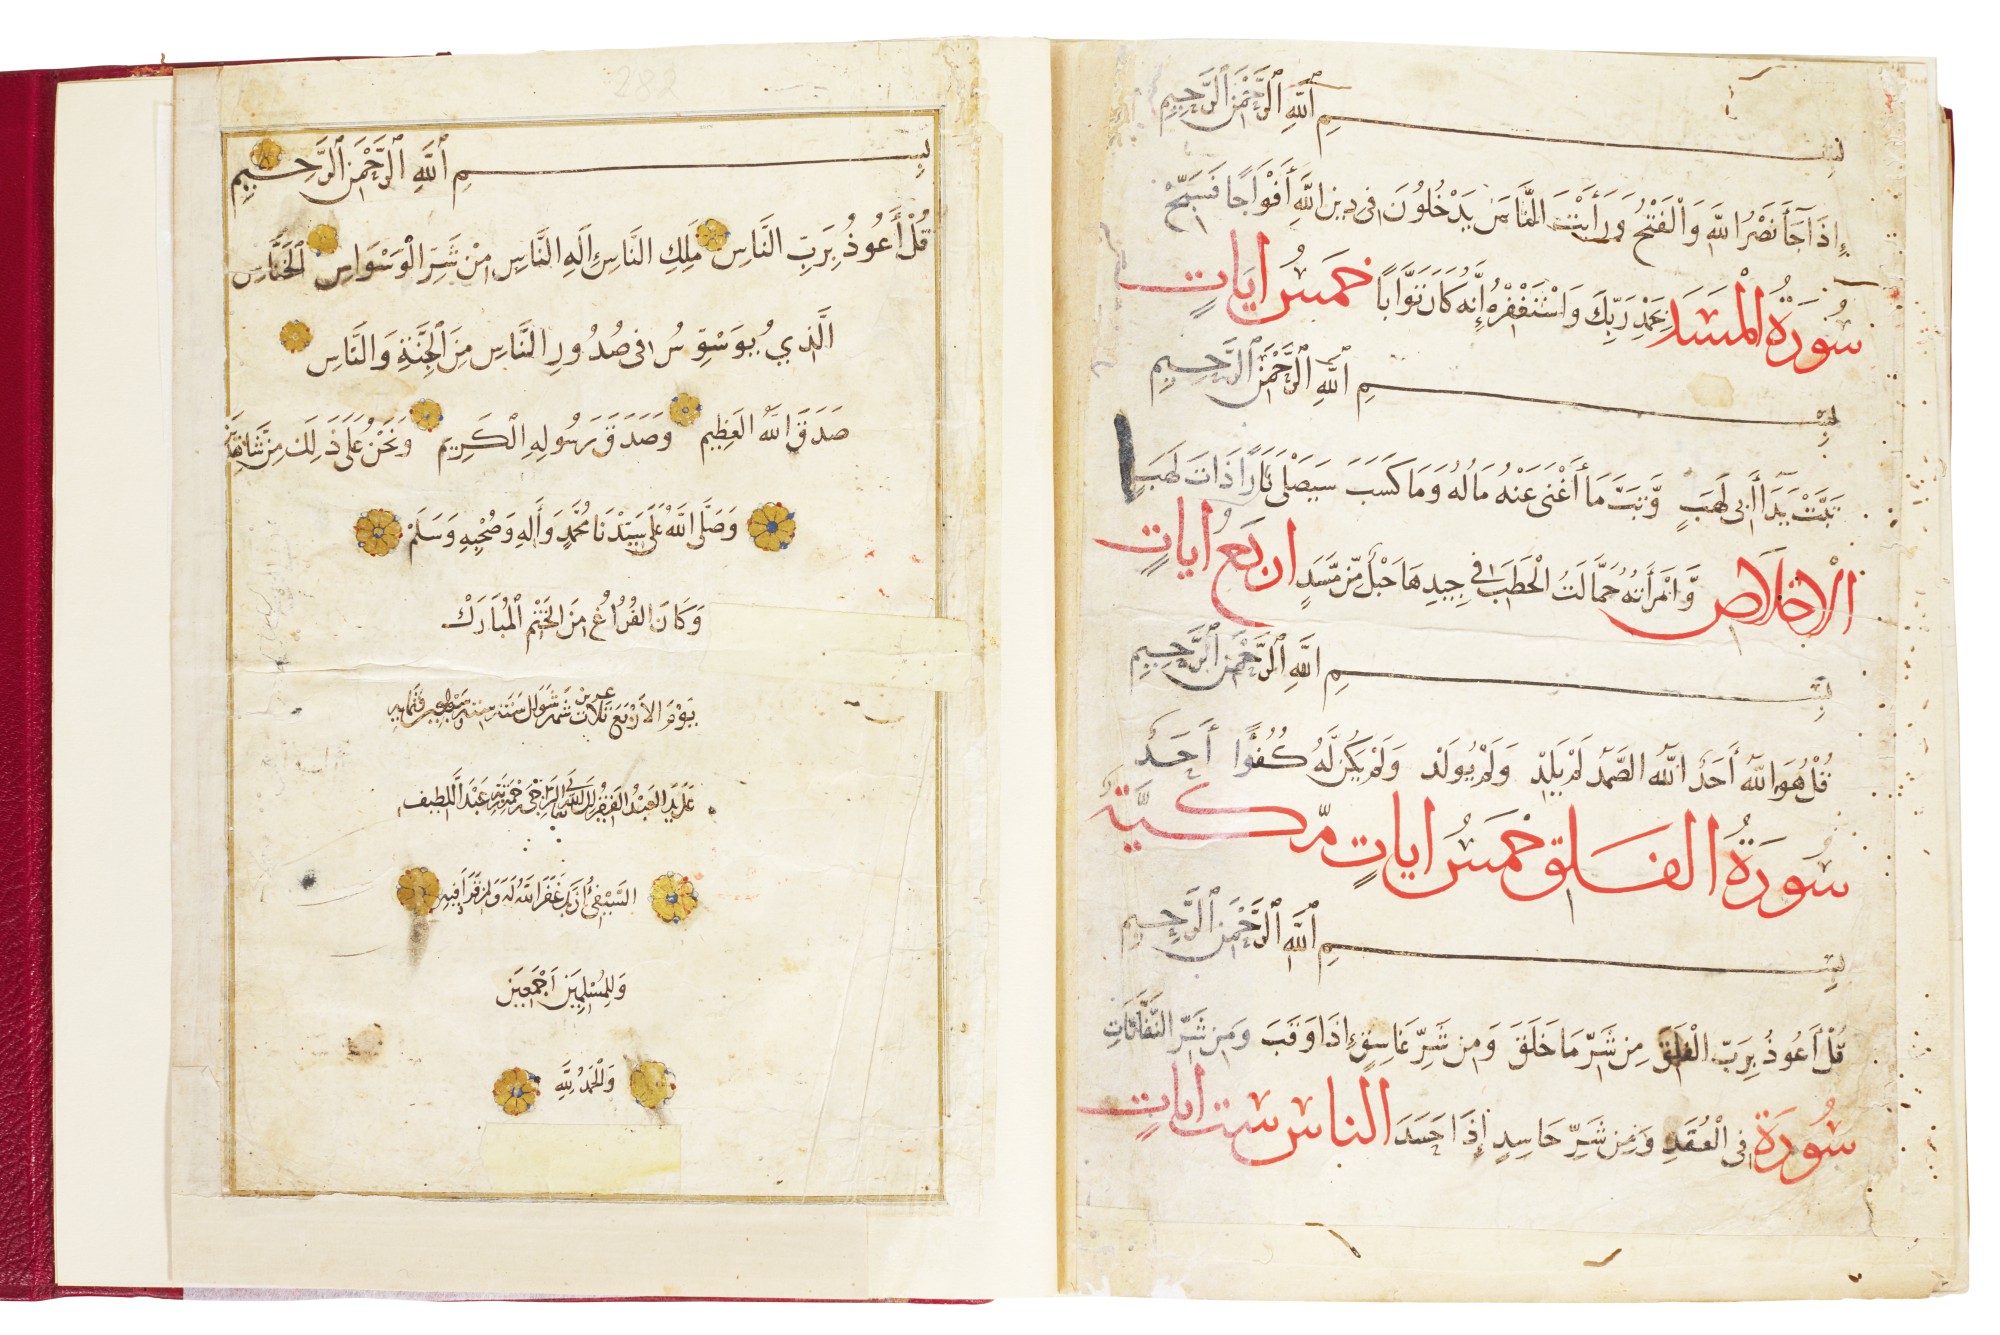 بِسْمِ ٱللَّهِ ٱلرَّحْمَٰنِ ٱلرَّحِيمِ
إِذَا جَآءَ نَصْرُ اللَّهِ وَالْفَتْحُ وَرَأَيْتَ النَّاسَ يَدْخُلُونَ فِي دِينِ اللَّهِ أَفْوَاجًا فَسَبِّحْ
بِحَمْدِ رَبِّكَ وَاسْتَغْفِرْهُ إِنَّهُ كَانَ تَوَّابًا سُورَةُ الْمَسَدِ خَمْسُ ايَاتٍ
بِسْمِ ٱللَّهِ ٱلرَّحْمَٰنِ ٱلرَّحِيمِ
تَبَّتْ يَدَا أَبِي لَهَبٍ وَّتَبَّ مَا أَغْنَى عَنْهُ مَالُهُ وَمَا كَسَبَ سَيَصْلَى نَارًا ذَاتَ لَهَبٍ
وَّامْرَأَتُهُ حَمَّالَتُ الْحَطَبِ فِي جِيدِهَا حَبْلٌ مِّن مَّسَدٍ الْاِخْلَاصِ اربَعُ ايَاتٍ
بِسْمِ ٱللَّهِ ٱلرَّحْمَٰنِ ٱلرَّحِيمِ
قُلْ هُوَ اللَّهُ أَحَدٌ اللَّهُ الصَّمَدُ لَمْ يَلِدْ وَلَمْ يُولَدْ وَلَمْ يَكُن لَّهُ كُفُوًا أَحَدٌ
سُورَةُ الفَلَقِ خَمْسُ ايَاتٍ مَّكِّيَّةٌ
بِسْمِ ٱللَّهِ ٱلرَّحْمَٰنِ ٱلرَّحِيمِ
قُلْ أَعُوذُ بِرَبِّ الْفَلَقِ مِن شَرِّ مَا خَلَقَ وَمِن شَرِّ غَاسِقٍ إِذَا وَقَبَ وَمِن شَرِّ النَّفَّاثَاتِ
فِي الْعُقَدِ وَمِن شَرِّ حَاسِدٍ إِذَا حَسَدَ سُورَةُ الناسِ ستُّ ايَاتٍ
282
بِسْمِ ٱللَّهِ ٱلرَّحْمَٰنِ ٱلرَّحِيمِ
قُلْ أَعُوذُ بِرَبِّ النَّاسِ مَلِكِ النَّاسِ إِلَهِ النَّاسِ مِنْ شَرِّ الْوَسْوَاسِ الْخَنَّاسِ
الَّذِي يُوَسْوِسُ فِي صُدُورِ النَّاسِ مِنَ الْجِنَّةِ وَالنَّاسِ
صَدَقَ اللَّهُ الْعَظِيمِ وَصَدَقَ رَسُولِهِ الْكَرِيم وَنَحْنُ عَلَى ذَلِكَ مِنَ
وَصَلَّى اللَّهُ عَلَى سَيِّدْنَا مُحَمَّدٍ وَأَلِهِ وَصُحْبِهِ وَسَلَمْ
وَكَانَ الفُرَاغُ مِنَ الخَتْمِ الْمُبَارَكْ
يَوْمَ الأَرْبَعِ شَوَّال سَنَة
عَلَى يَدِ العَبْدُ الفَقِيرُ لِلَّهِ تَعَالَى الرَّاجِي رَحْمَةِ رَبِّهِ عَبْدُ اللَّطِيف
السَّيْفِيُّ غَفَرَ اللَّهُ لَهُ وَلِمَن قَرَأَ فِيهِ
وَلِلْمُسْلِمِينَ اَجْمَعِينَ
وَلْحَمْدُ لِلَّهِ